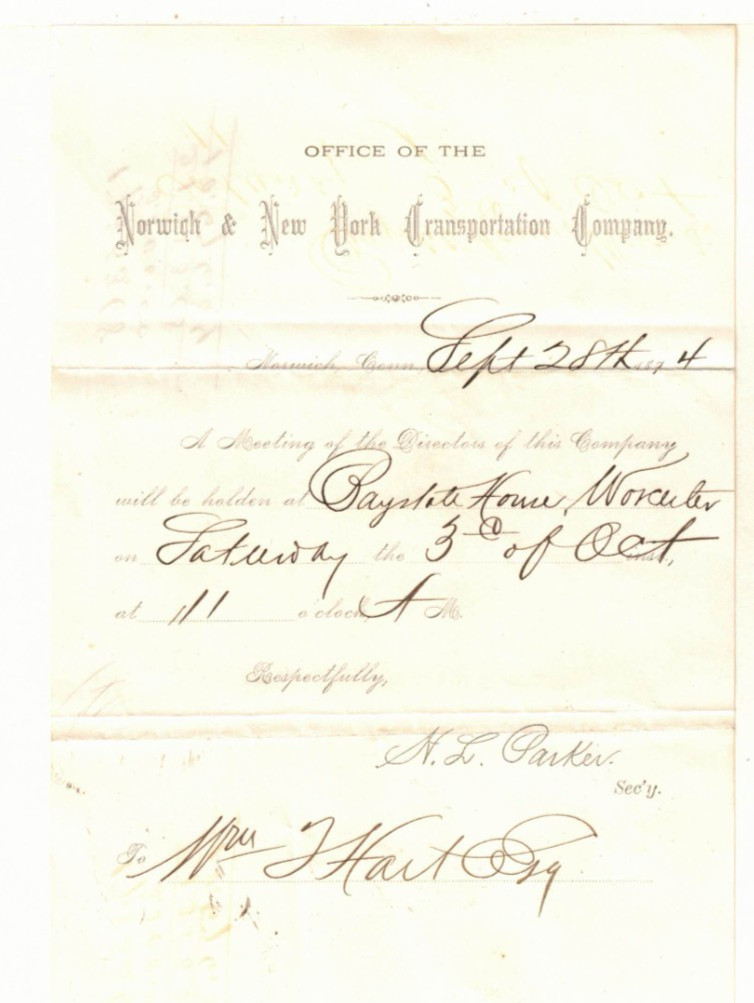 OFFICE OF THE
Norwich & New York Transportation Company.
Norwich, Conn. Sept 28th 1874
A Meeting of the Directors of this Company
will be holden at Baystate House, Worcester
on Saturday the 3d of Oct inst.,
at 11 o'clock, A M.
Respectfully,
H. L. Parker.
Sec'y.
To Wm T Hart Esq